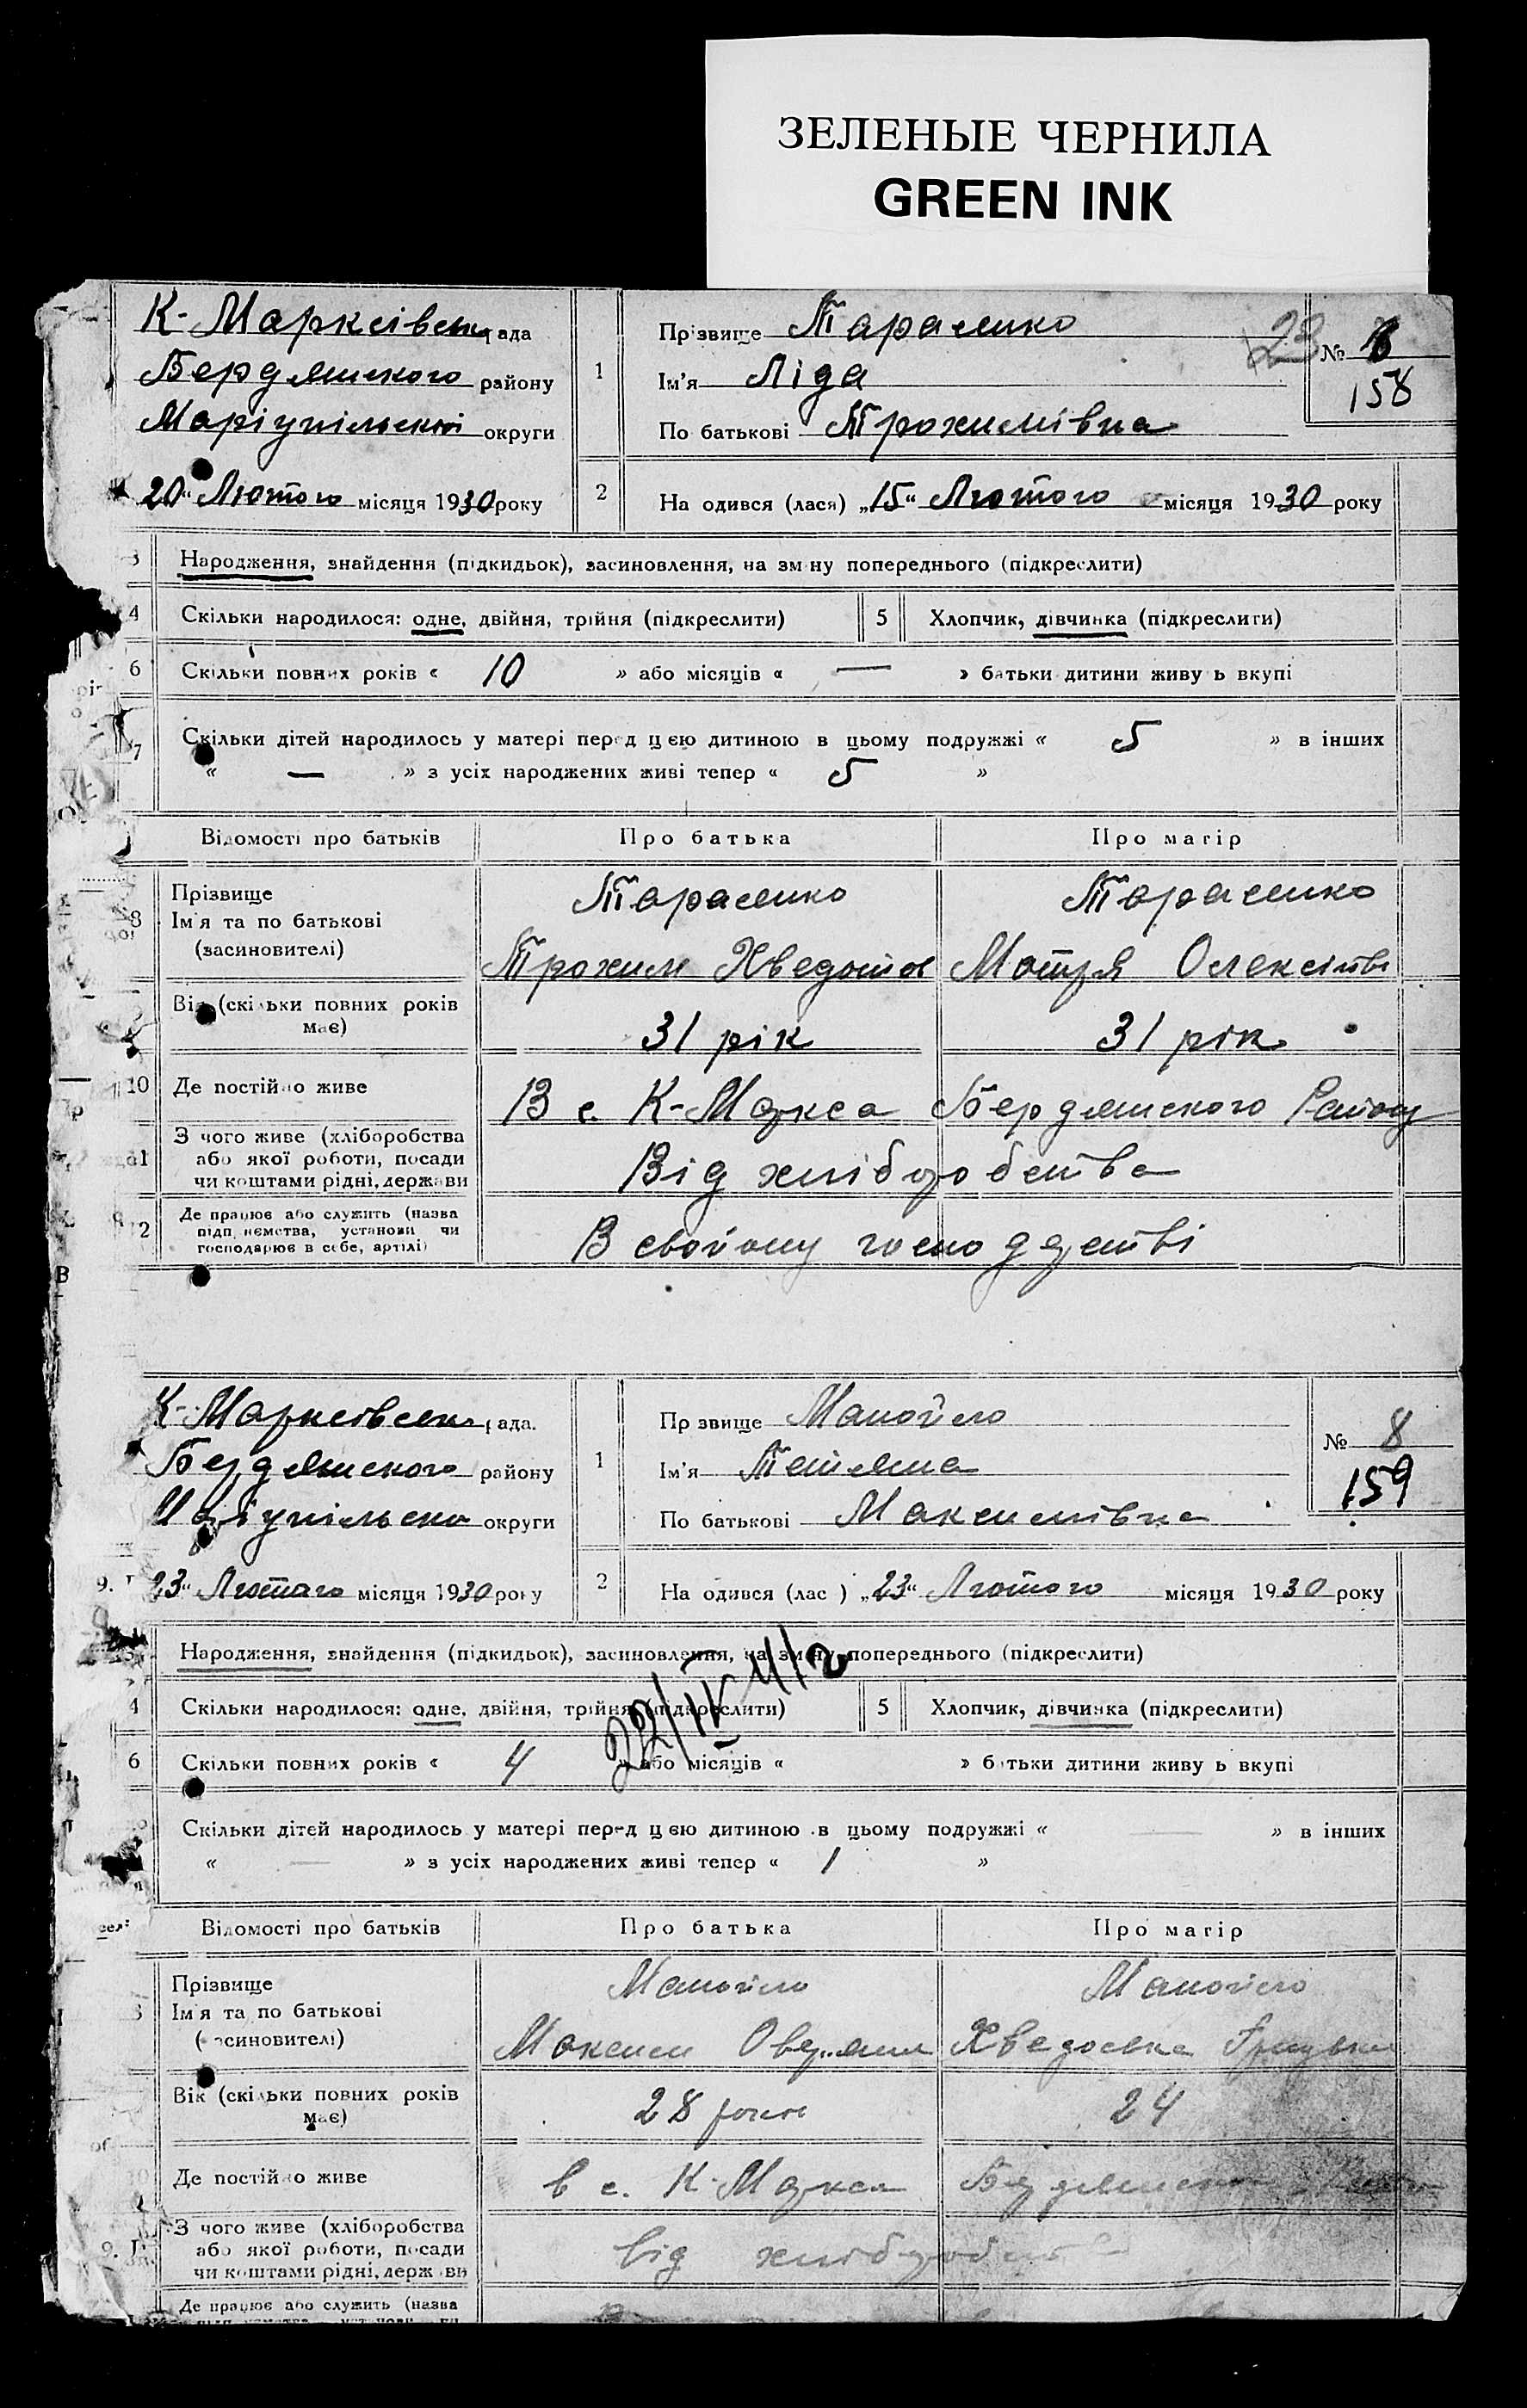 ЗЕЛЕНЫЕ ЧЕРНИЛА
GREEN INK
К-Марксівська рада
Бердянського району
Маріупільської округи
„20“ Лютого місяця 1930 року
1
Прізвище Тараненко
Ім'я Ліда
По батькові Трохимівна
23
№ 6
158
2
Народився (лася) „15“ Лютого місяця 1930 року
3
Народження, знайдення (підкидьок), засиновлення, на зміну попереднього (підкреслити)
4
Скільки народилося: одне, двійня, трійня (підкреслити)
5
Хлопчик, дівчинка (підкреслити)
6
Скільки повних років « 10 » або місяців « — » батьки дитини живуть вкупі
7
Скільки дітей народилось у матері перед цією дитиною в цьому подружжі « 5 » в інших
« — » з усіх народжених живі тепер « 5 »
Відомості про батьків
Про батька
Про матір
8
Прізвище
Ім'я та по батькові
(засиновителі)
Тараненко
Трохим Хведотов
Тараненко
Мотря Олексіївн
Вік (скільки повних років
має)
31 рік
31 рік
10
Де постійно живе
В с. К-Маркса Бердянського Району
11
З чого живе (хліборобства
або якої роботи, посади
чи коштами рідні, держави
Від хліборобства
12
Де працює або служить (назва
підприємства, установи чи
господарює в себе, артілі)
В свойому господарстві
К-Марксівська рада
Бердянського району
Маріупільсько округи
„23“ Лютого місяця 1930 року
1
Прізвище Манойло
Ім'я Тетяна
По батькові Максимівна
№ 8
159
2
Народився (лася) „23“ Лютого місяця 1930 року
Народження, знайдення (підкидьок), засиновлення, на зміну попереднього (підкреслити)
4
Скільки народилося: одне, двійня, трійня (підкреслити)
5
Хлопчик, дівчинка (підкреслити)
6
Скільки повних років « 4 » або місяців « » батьки дитини живуть вкупі
Скільки дітей народилось у матері перед цією дитиною в цьому подружжі « — » в інших
« — » з усіх народжених живі тепер « 1 »
Відомості про батьків
Про батька
Про матір
Прізвище
Ім'я та по батькові
(засиновителі)
Манойло
Максим
Манойло
Хведоська
Вік (скільки повних років
має)
28 роки
24
Де постійно живе
в с. К-Маркса
З чого живе (хліборобства
або якої роботи, посади
чи коштами рідні, держави
від хліборобства
Де працює або служить (назва